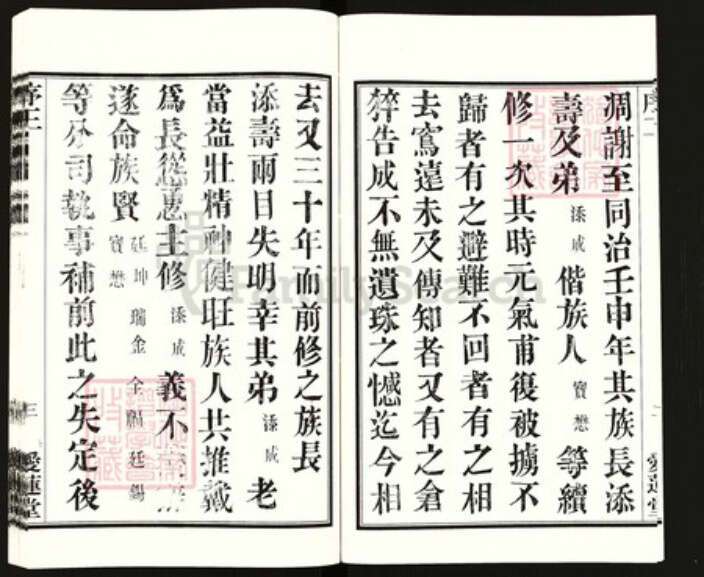 凋謝至同治壬申年其族長添
壽及弟添成偕族人寶懋等續
修一次其時元氣甫復被擄不
歸者有之避難不回者有之相
去寫遠未及傳知者又有之倉
猝告成不無遺珠之憾迄今相
去又三十年而前修之族長
添壽兩目失明幸其弟添成老
當益壯精神健旺族人共推戴
爲長慫恿主修添成義不
遂命族賢廷坤瑞金全鵬廷錫寶懋
等分司執事補前此之失定後
序三
三
愛蓮堂
愛蓮堂
Family Search